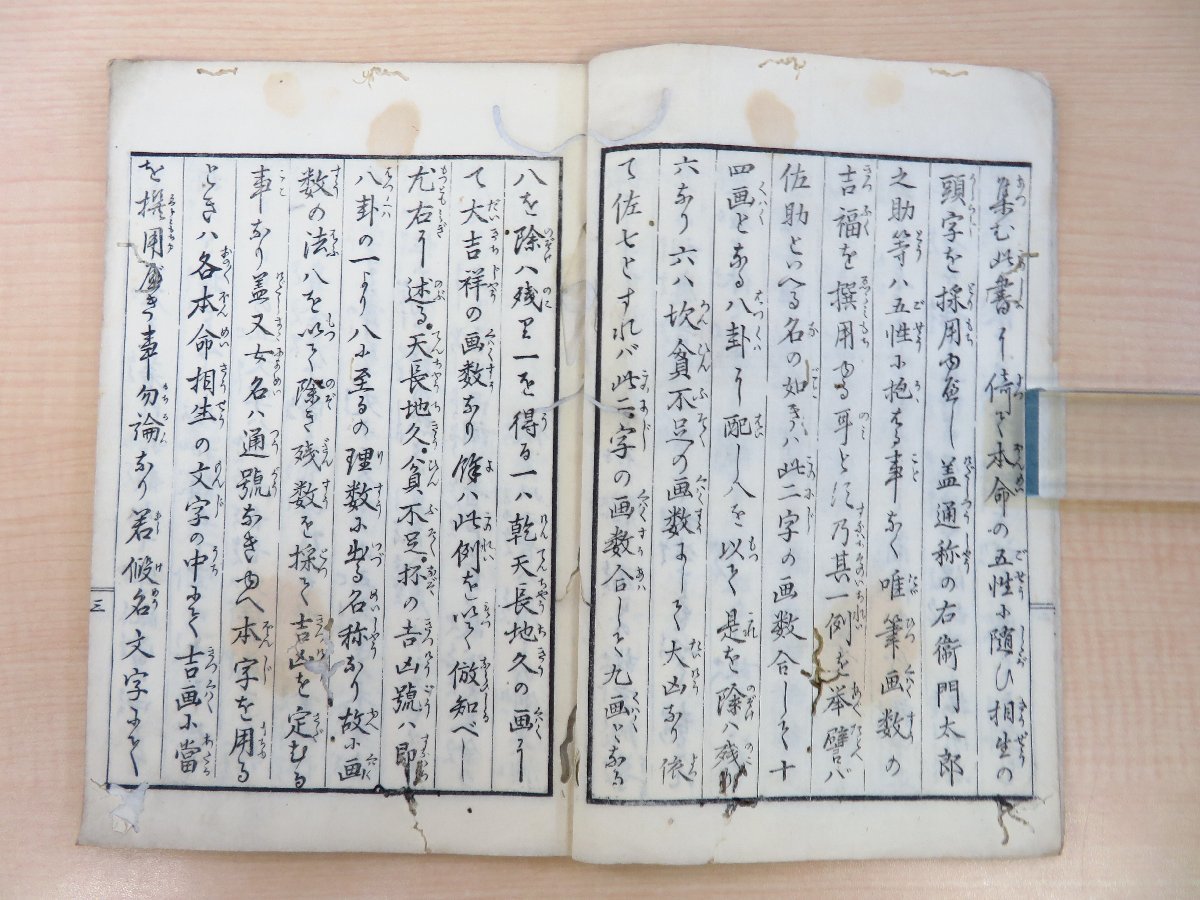 集む此書に倚て本命の五性に随ひ相生の
頭字を採用ゆべし蓋通称の右衛門太郎
之助等ハ五性に抱はる事なく唯筆画数の
吉福を撰用ゆる耳とす乃其一例を挙譬バ
佐助といへる名の如きハ此二字の画数合して十
四画となる八卦に配し人を以て是を除ハ残り
六なり六ハ坎貧不足の画数にして大凶なり依
て佐七とすれバ此二字の画数合して九画となる
八を除ハ残り一を得る一ハ乾天長地久の画にし
て大吉祥の画数なり餘ハ此例を以て倣知べし
尤右に述る天長地久貧不足抔の吉凶號ハ即
八卦の一より八に至るの理数に出る名称なり故に画
数の法八を以て除き残数を採て吉凶を定むる
事なり蓋又女名ハ通號なきゆへ本字を用る
ときハ各本命相生の文字の中にて吉画に當
を撰用べき事勿論なり若假名文字にて
三